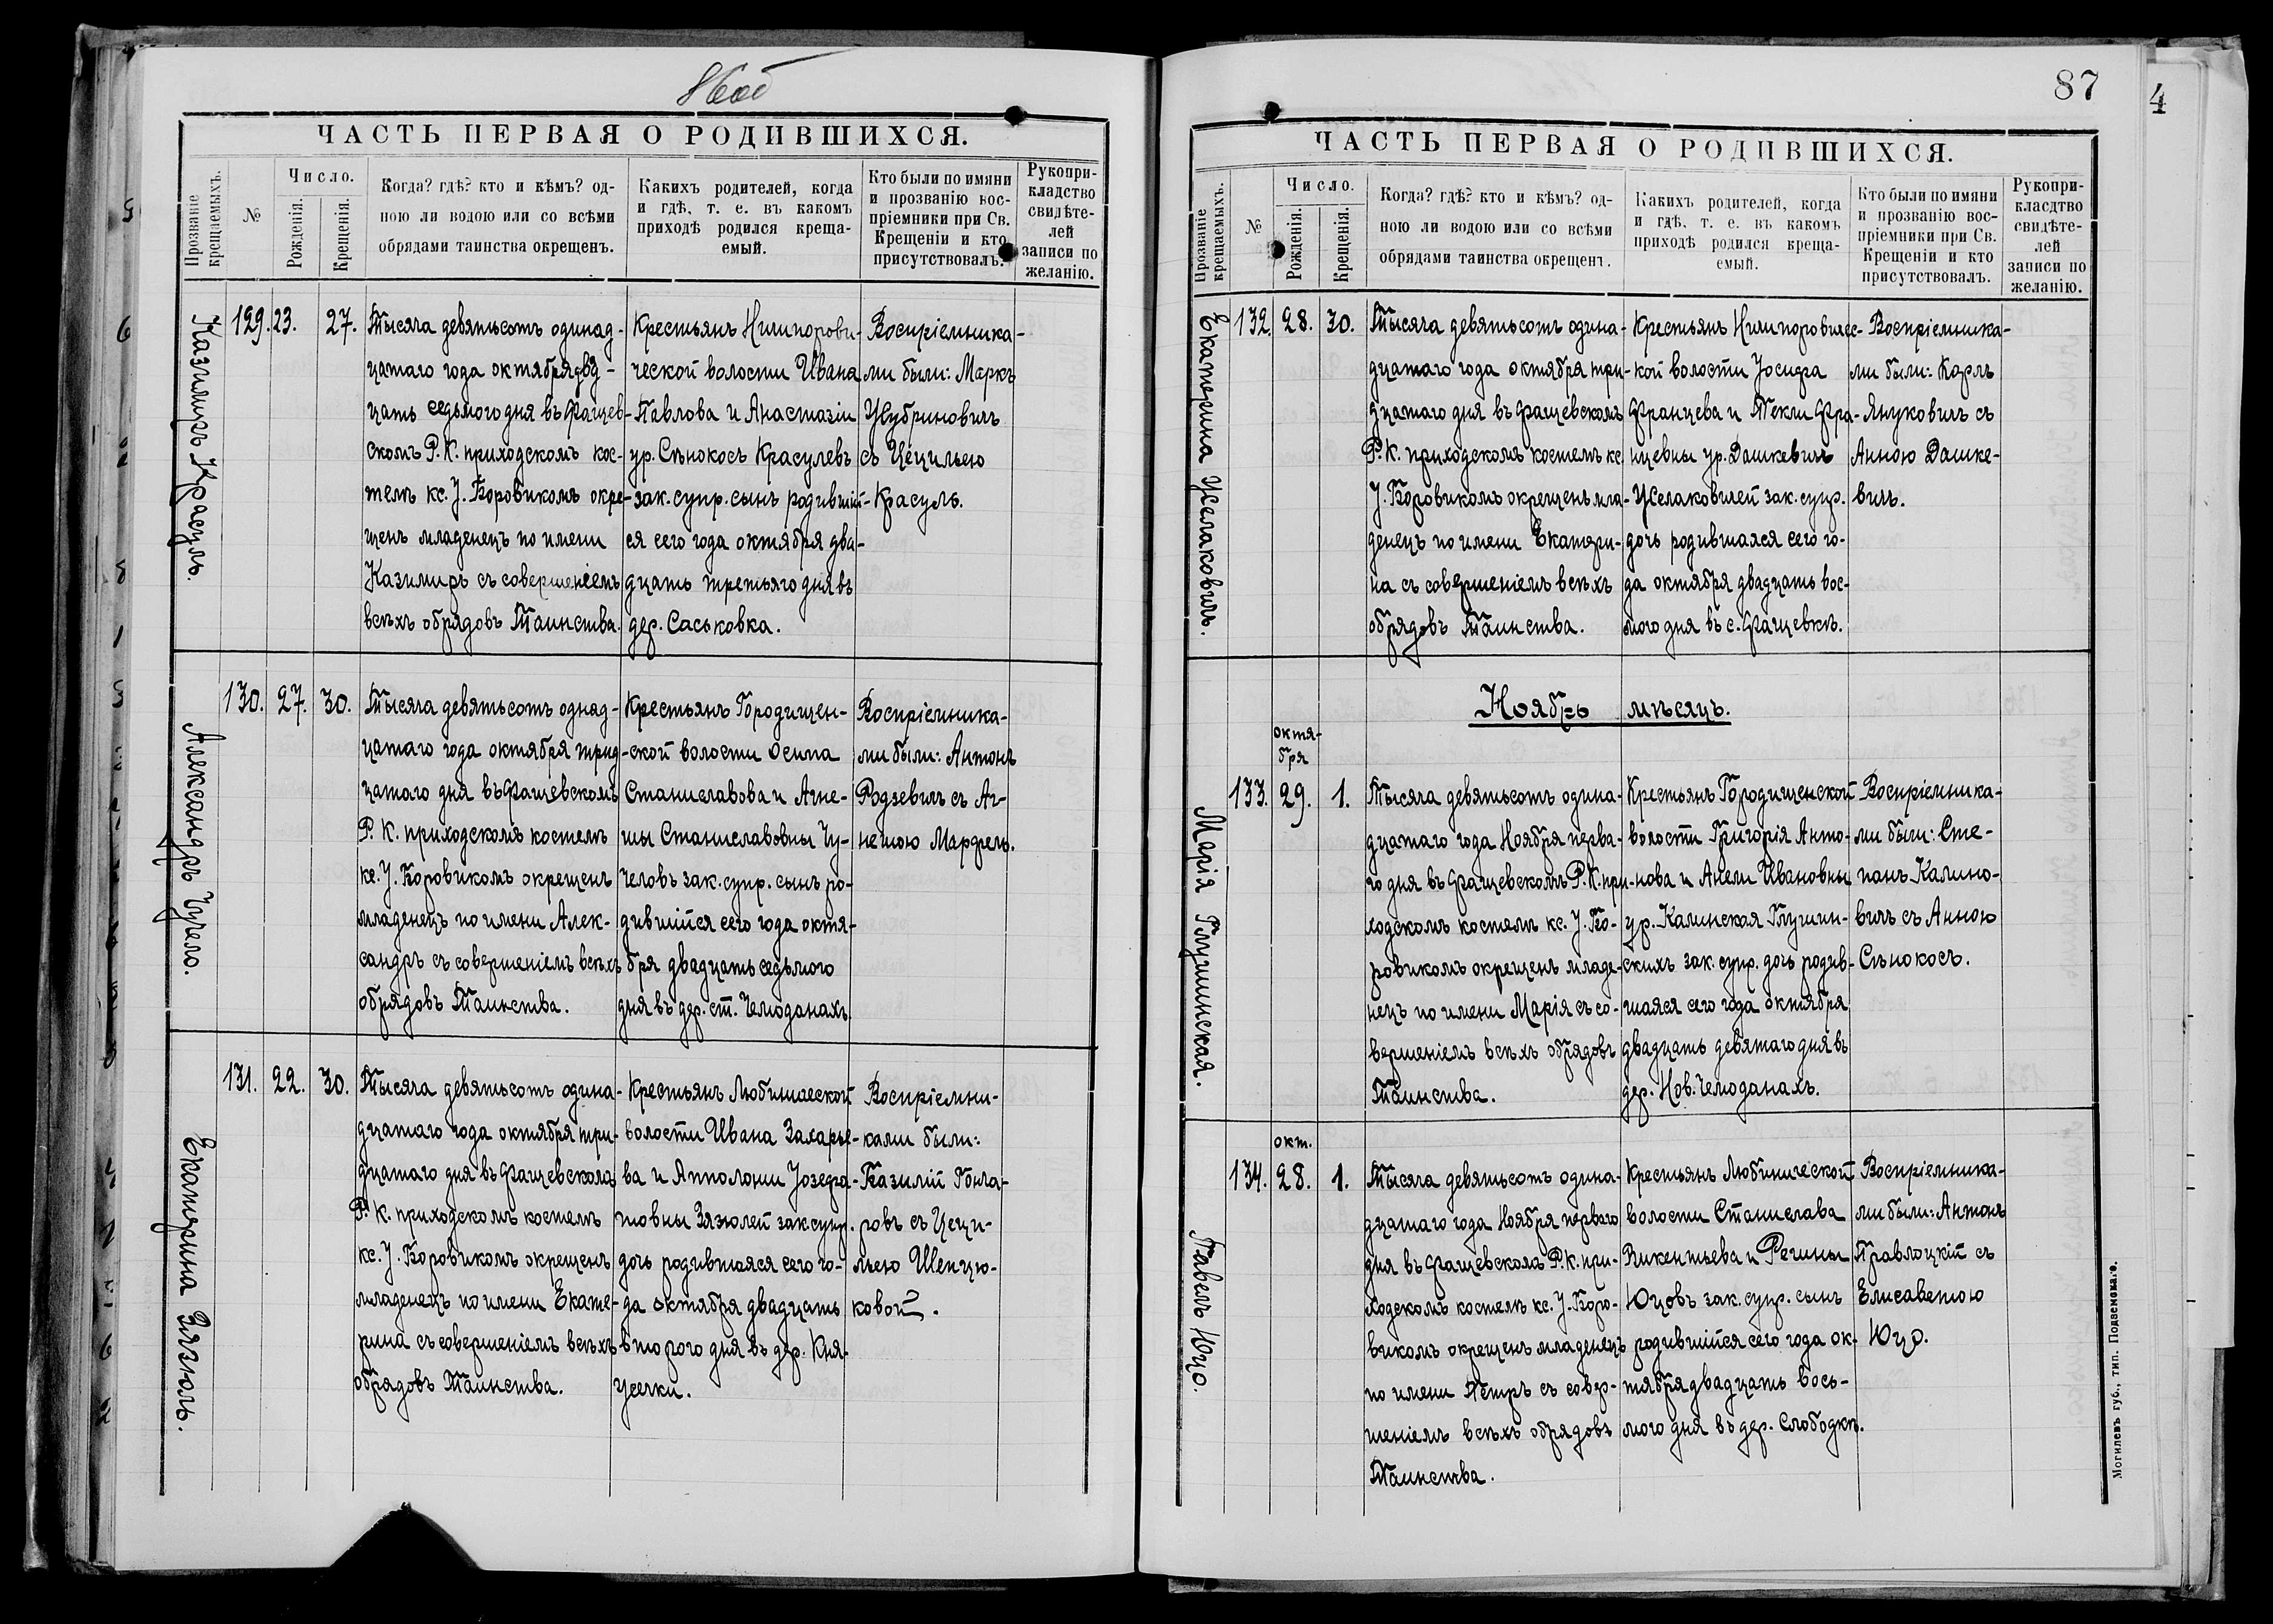 86об
ЧАСТЬ ПЕРВАЯ О РОДИВШИХСЯ.
Прозваніе крещаемыхъ.
№
Число.
Рожденія.
Крещенія.
Когда? гдѣ? кто и кѣмъ? од-
ною ли водою или со всѣми
обрядами таинства окрещенъ.
Какихъ родителей, когда
и гдѣ, т. е. въ какомъ
приходѣ родился креща-
емый.
Кто были по имяни
и прозванію вос-
пріемники при Св.
Крещеніи и кто
присутствовалъ.
Рукопри-
кладство
свидѣте-
лей
записи по
желанію.
Казимиръ Красуль.
129. 23. 27.
Тысяча девятьсотъ одинад-
цатаго года октября двд-
цать седьмого дня въ Фащев-
скомъ Р. К. приходскомъ кос-
телѣ кс. У. Боровикомъ окре-
щенъ младенецъ по имени
Казимиръ съ совершеніемъ
всѣхъ обрядовъ Таинства.
Крестьянъ Ничипорови-
ческой волости Ивана
Павлова и Анастазіи
ур. Сѣнокосъ Красулевъ
зак. супр. сынъ родившій-
ся сего года октября два-
дцать третьяго дня въ
дер. Саськовка.
Воспріемника-
ми были: Маркъ
Цубриновичъ
съ Цецильею
Красуль.
Александръ Чучело.
130. 27. 30.
Тысяча девятьсотъ однад-
цатаго года октября трид-
цатаго дня въ Фащевскомъ
Р. К. приходскомъ костелѣ
кс. У. Боровикомъ окрещенъ
младенецъ по имени Алек-
сандръ съ совершеніемъ всѣхъ
обрядовъ Таинства.
Крестьянъ Городищен-
ской волости Осипа
Станиславова и Агне-
шы Станиславовны Чу-
человъ зак. супр. сынъ ро-
дившійся сего года октя-
бря двадцать седьмого
дня въ дер. ст. Чемоданахъ.
Воспріемника-
ми были: Антонъ
Родзевичъ съ Аг-
нешою Марфель.
Екатерина Зязюль.
131. 22. 30.
Тысяча девятьсотъ одина-
дцатаго года октября три-
дцатаго дня въ Фащевскомъ
Р. К. приходскомъ костелѣ
кс. У. Боровикомъ окрещенъ
младенецъ по имени Екате-
рина съ совершеніемъ всѣхъ
обрядовъ Таинства.
Крестьянъ Любинической
волости Ивана Захарье-
ва и Апполоніи Іозефа-
товны Зязюлей зак супр.
дочь родившаяся сего го-
да октября двадцать
второго дня въ дер. Кня-
Воспріемни-
ками были:
Казимій Гонча-
ровъ съ Цеци-
льею Шенцю-
ковой.
87
4
ЧАСТЬ ПЕРВАЯ О РОДИВШИХСЯ.
Прозваніе крещаемыхъ.
№
Число.
Рожденія.
Крещенія.
Когда? гдѣ? кто и кѣмъ? од-
ною ли водою или со всѣми
обрядами таинства окрещен.
Какихъ родителей, когда
и гдѣ, т. е. въ какомъ
приходѣ родился креща-
емый.
Кто были по имяни
и прозванію вос-
пріемники при Св.
Крещеніи и кто
присутствовалъ.
Рукопри-
класдтво
свидѣте-
лей
записи по
желанію.
Екатерина Целаковичъ.
132. 28. 30.
Тысяча девятьсотъ одина-
дцатаго года октября три-
дцатаго дня въ Фащевскомъ
Р. К. приходскомъ костелѣ кс
У. Боровикомъ окрещенъ мла-
денецъ по имени Екатери-
на съ совершеніемъ всѣхъ
обрядовъ Таинства.
Крестьянъ Ничипоровичес-
кой волости Іосифа
Францева и Текли Фра-
нцевны ур. Дашкевичъ
Целаковичей зак. супр.
дочь родившаяся сего го-
да октября двадцать вос-
мого дня въ с. Фащевкѣ.
Воспріемника-
ми были: Карлъ
Януковичъ съ
Анною Дашке-
вичъ.
Ноябрь мѣсяцъ.
Марія Глушинская.
октя-
бря
133. 29. 1.
Тысяча девятьсотъ одина-
дцатаго года Ноября перва-
го дня въ Фащевскомъ Р. К. при-
ходскомъ костелѣ кс. У. Бо-
ровикомъ окрещенъ младе-
нецъ по имени Марія съ со-
вершеніемъ всѣхъ обрядовъ
Таинства.
Крестьянъ Городищенской
волости Григорія Анто-
нова и Анели Ивановны
ур. Калинская Глушин-
скихъ зак. супр. дочь родив-
шаяся сего года октября
двадцать девятаго дня въ
дер. Нов. Чемоданахъ.
Воспріемника-
ми были: Сте-
панъ Калино-
вичъ съ Анною
Сѣнокосъ.
Павелъ Юцо.
окт.
134. 28. 1.
Тысяча девятьсотъ одина-
дцатаго года Ноября перваго
дня въ Фащевскомъ Р. К. при-
ходскомъ костелѣ кс. У. Боро-
викомъ окрещенъ младенецъ
по имени Петръ съ совер-
шеніемъ всѣхъ обрядовъ
Таинства.
Крестьянъ Любинической
волости Станислава
Викентьева и Регины
Юцовъ зак. супр. сынъ
родившійся сего года ок-
тября двадцать вось-
мого дня въ дер. Слободкѣ.
Воспріемника-
ми были: Антонъ
Правлоцкій съ
Елисаветою
Юцо.
Могилевъ губ., тип. Подземскаго.